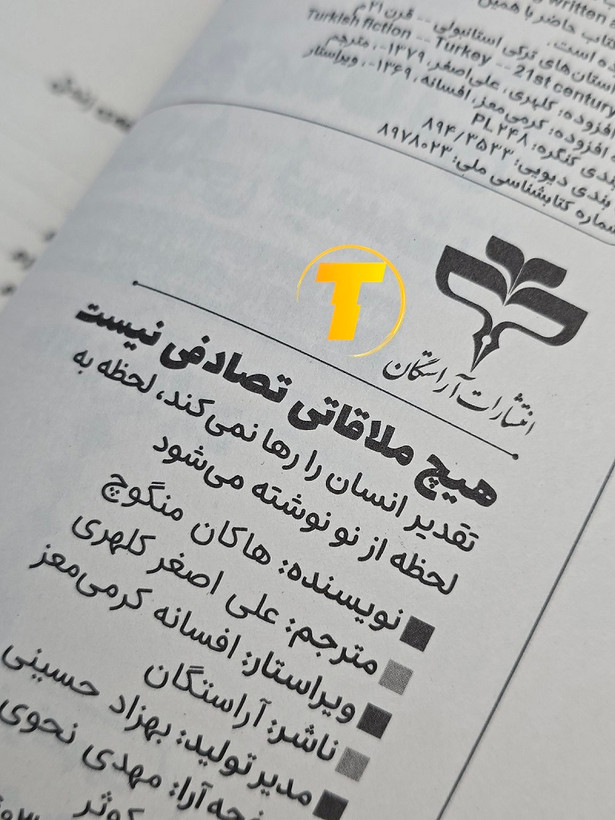 written
کتاب حاضر با همین
ده است.
استان‌های ترکی استانبولی -- قرن ۲۱م
Turkish fiction -- Turkey -- 21st century
افزوده: کلهری، علی‌اصغر، ۱۳۷۹-، مترجم
افزوده: کرمی‌معز، افسانه، ۱۳۶۹-، ویراستار
بندی کنگره: PL۲۴۸
بندی دیویی: ۸۹۴/۳۵۳۳
شماره کتابشناسی ملی: ۸۹۷۸۰۲۳
T
انتشارات آراستگان
هیچ ملاقاتی تصادفی نیست
تقدیر انسان را رها نمی‌کند، لحظه به
لحظه از نو نوشته می‌شود
نویسنده: هاکان منگوچ
مترجم: علی اصغر کلهری
ویراستار: افسانه کرمی‌معز
ناشر: آراستگان
مدیر تولید: بهزاد حسینی
صفحه‌آرا: مهدی نحوی
کوثر